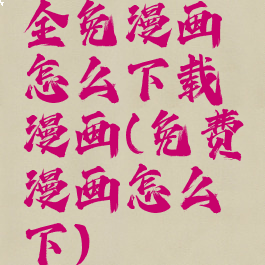 全免漫画
怎么下载
漫画(免费
漫画怎么
下)